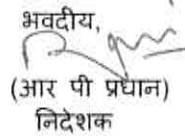 भवदीय,
(आर पी प्रधान)
निदेशक